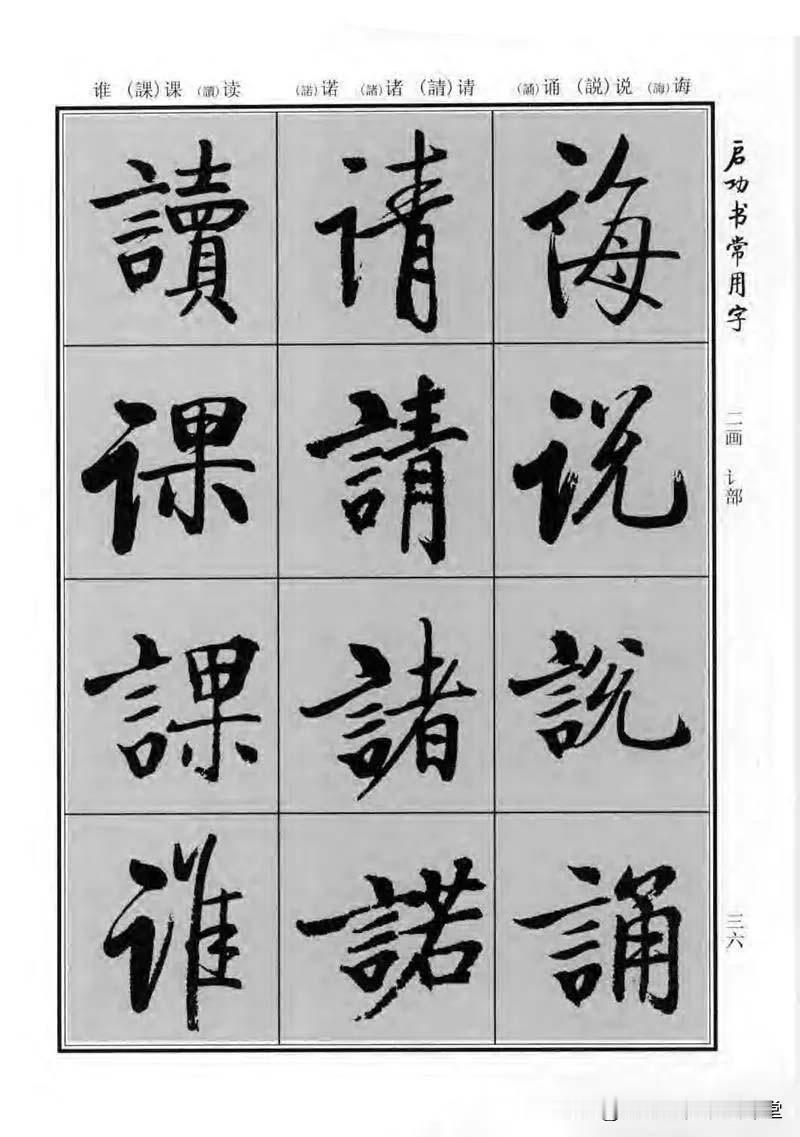 诲(誨) 说(説) 诵(誦) 请(請) 诸(諸) 诺(諾) 读(讀) 课(課) 谁
启功书常用字
二画 讠部
三六
诲说説誦
请請諸諾
讀课課谁